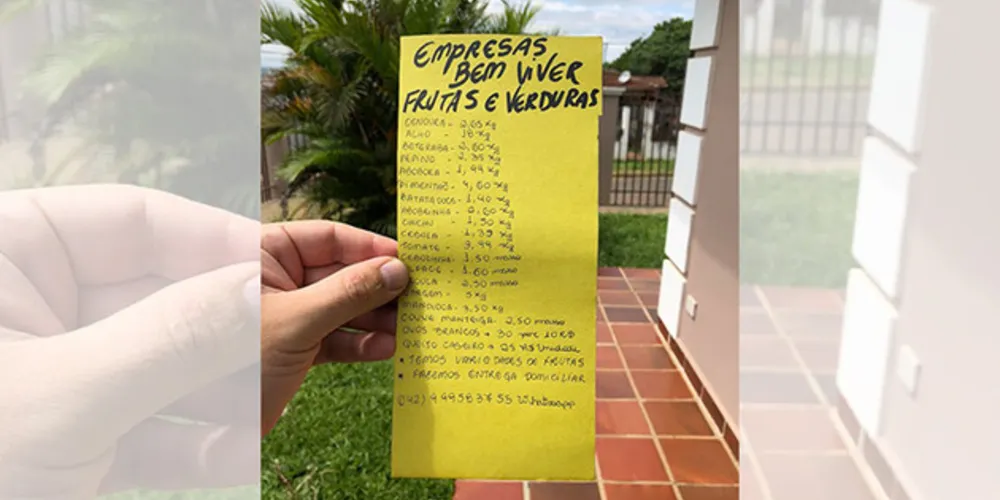 EMPRESAS
BEM VIVER
FRUTAS E VERDURAS
CENOURA - 2,65 Kg
ALHO - 18 Kg
BETERABA - 2,60 Kg
PEPINO - 2,39 Kg
ABOBORA - 1,99 Kg
PIMENTÃO - 4,60 Kg
BATATA DOCE - 1,40 Kg
ABOBRINHA - 2,60 Kg
CHUCHU - 1,50 Kg
CEBOLA - 1,39 Kg
TOMATE - 3,99 Kg
CEBOLINHA 1,50
1,60
2,50
5 Kg
MANDIOCA - 3,50 Kg
COUVE MANTEIGA - 2,50
OVOS BRANCOS → 30 por 10 R$
QUEIJO CASEIRO → 25 R$ Unidade
• TEMOS VARIEDADES DE FRUTAS
• FAZEMOS ENTREGA DOMICILIAR
(42) 999583755 Whatsapp